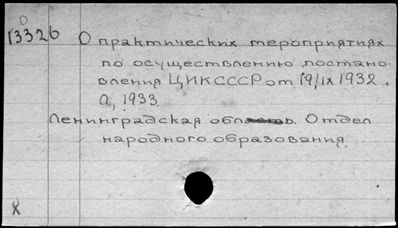 0
13326
О практических мероприятиях
по осуществлению постано-
вления ЦИК СССР от 19/IX 1932.
Л, 1933.
Ленинградская область. Отдел
народного образования.
X